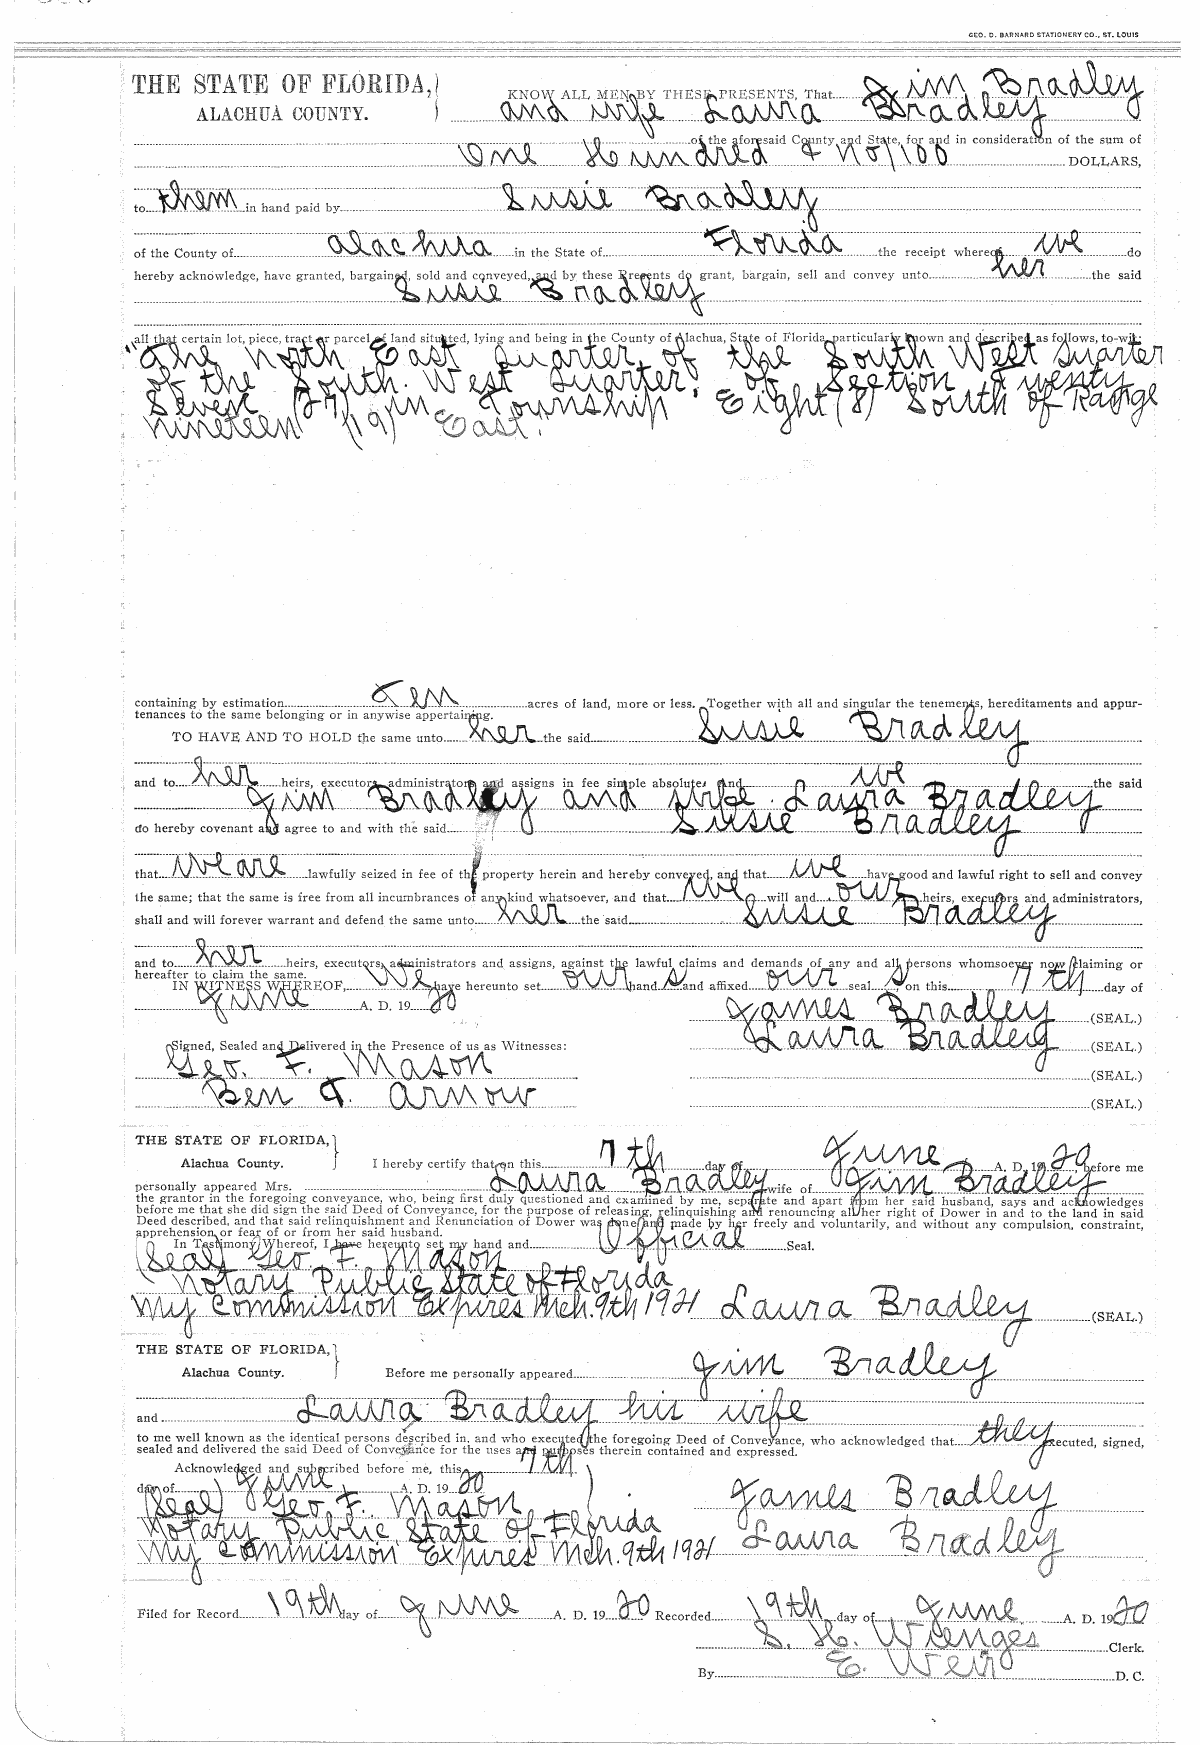 GEO. D. BARNARD STATIONERY CO., ST. LOUIS
THE STATE OF FLORIDA,
ALACHUA COUNTY.
KNOW ALL MEN BY THESE PRESENTS, That Jim Bradley
and wife Laura Bradley
of the aforesaid County and State, for and in consideration of the sum of
One Hundred & no/100 DOLLARS,
to them in hand paid by Susie Bradley
of the County of Alachua in the State of Florida the receipt whereof we do
hereby acknowledge, have granted, bargained, sold and conveyed, and by these Presents do grant, bargain, sell and convey unto her the said
Susie Bradley
all that certain lot, piece, tract or parcel of land situated, lying and being in the County of Alachua, State of Florida, particularly known and described as follows, to-wit:
"The North East Quarter of the South West Quarter
of the South West Quarter of Section Twenty
Seven (27) in Township Eight (8) South of Range
nineteen (19) East.
containing by estimation Ten acres of land, more or less. Together with all and singular the tenements, hereditaments and appur-
tenances to the same belonging or in anywise appertaining.
TO HAVE AND TO HOLD the same unto her the said Susie Bradley
and to her heirs, executors, administrators and assigns in fee simple absolute. And we the said
Jim Bradley and wife Laura Bradley
do hereby covenant and agree to and with the said Susie Bradley
that we are lawfully seized in fee of the property herein and hereby conveyed, and that we have good and lawful right to sell and convey
the same; that the same is free from all incumbrances of any kind whatsoever, and that we will and our heirs, executors and administrators,
shall and will forever warrant and defend the same unto her the said Susie Bradley
and to her heirs, executors, administrators and assigns, against the lawful claims and demands of any and all persons whomsoever now claiming or
hereafter to claim the same.
IN WITNESS WHEREOF, We have hereunto set our hand s and affixed our seal s on this 7th day of
June A. D. 19 20
James Bradley (SEAL.)
Laura Bradley (SEAL.)
Signed, Sealed and Delivered in the Presence of us as Witnesses:
Geo. F. Mason (SEAL.)
Ben T. Arnow (SEAL.)
THE STATE OF FLORIDA,
Alachua County. I hereby certify that on this 7th day of June A. D. 19 20 before me
personally appeared Mrs. Laura Bradley wife of Jim Bradley
the grantor in the foregoing conveyance, who, being first duly questioned and examined by me, separate and apart from her said husband, says and acknowledges
before me that she did sign the said Deed of Conveyance, for the purpose of releasing, relinquishing and renouncing all her right of Dower in and to the land in said
Deed described, and that said relinquishment and Renunciation of Dower was done and made by her freely and voluntarily, and without any compulsion, constraint,
apprehension or fear of or from her said husband.
In Testimony Whereof, I have hereunto set my hand and Official Seal.
(Seal) Geo. F. Mason
Notary Public State of Florida
My Commission Expires Mch. 9th 1921 Laura Bradley (SEAL.)
THE STATE OF FLORIDA,
Alachua County. Before me personally appeared Jim Bradley
and Laura Bradley his wife
to me well known as the identical persons described in, and who executed the foregoing Deed of Conveyance, who acknowledged that they executed, signed,
sealed and delivered the said Deed of Conveyance for the uses and purposes therein contained and expressed.
Acknowledged and subscribed before me, this 7th
day of June A. D. 19 20
(Seal) Geo. F. Mason James Bradley
Notary Public State of Florida
My Commission Expires Mch. 9th 1921 Laura Bradley
Filed for Record 19th day of June A. D. 19 20 Recorded 19th day of June A. D. 19 20
S. H. Wienges Clerk.
By E. Weir D. C.